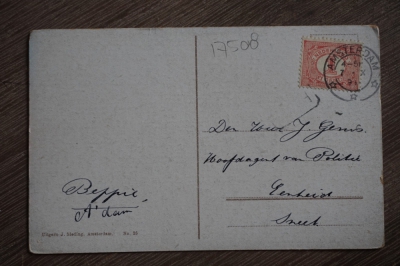 17508
AMSTERDAM
Den Heer J. Genis.
Hoofdagent van Politie
Eenheid
Sneek
Beppie
A'dam
Uitgave J. Sleding, Amsterdam. No. 32.